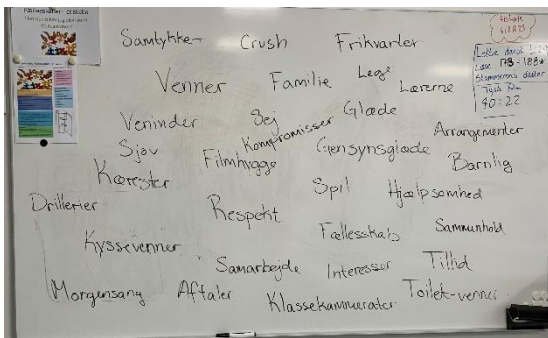 Samtykke- Crush Frikvarter
Venner Familie Lege Lærerne
Veninder Sej Glæde
Kompromisser Arrangementer
Sjov Filmhygge Gensynsglæde Barnlig
Kærester Spil Hjælpsomhed
Drillerier Respekt
Kyssevenner Fællesskab Sammenhold
Samarbejde Interesser Tillid
Morgensang Aftaler Klassekammerater Toilet-venner
Læse 178-188
40:22